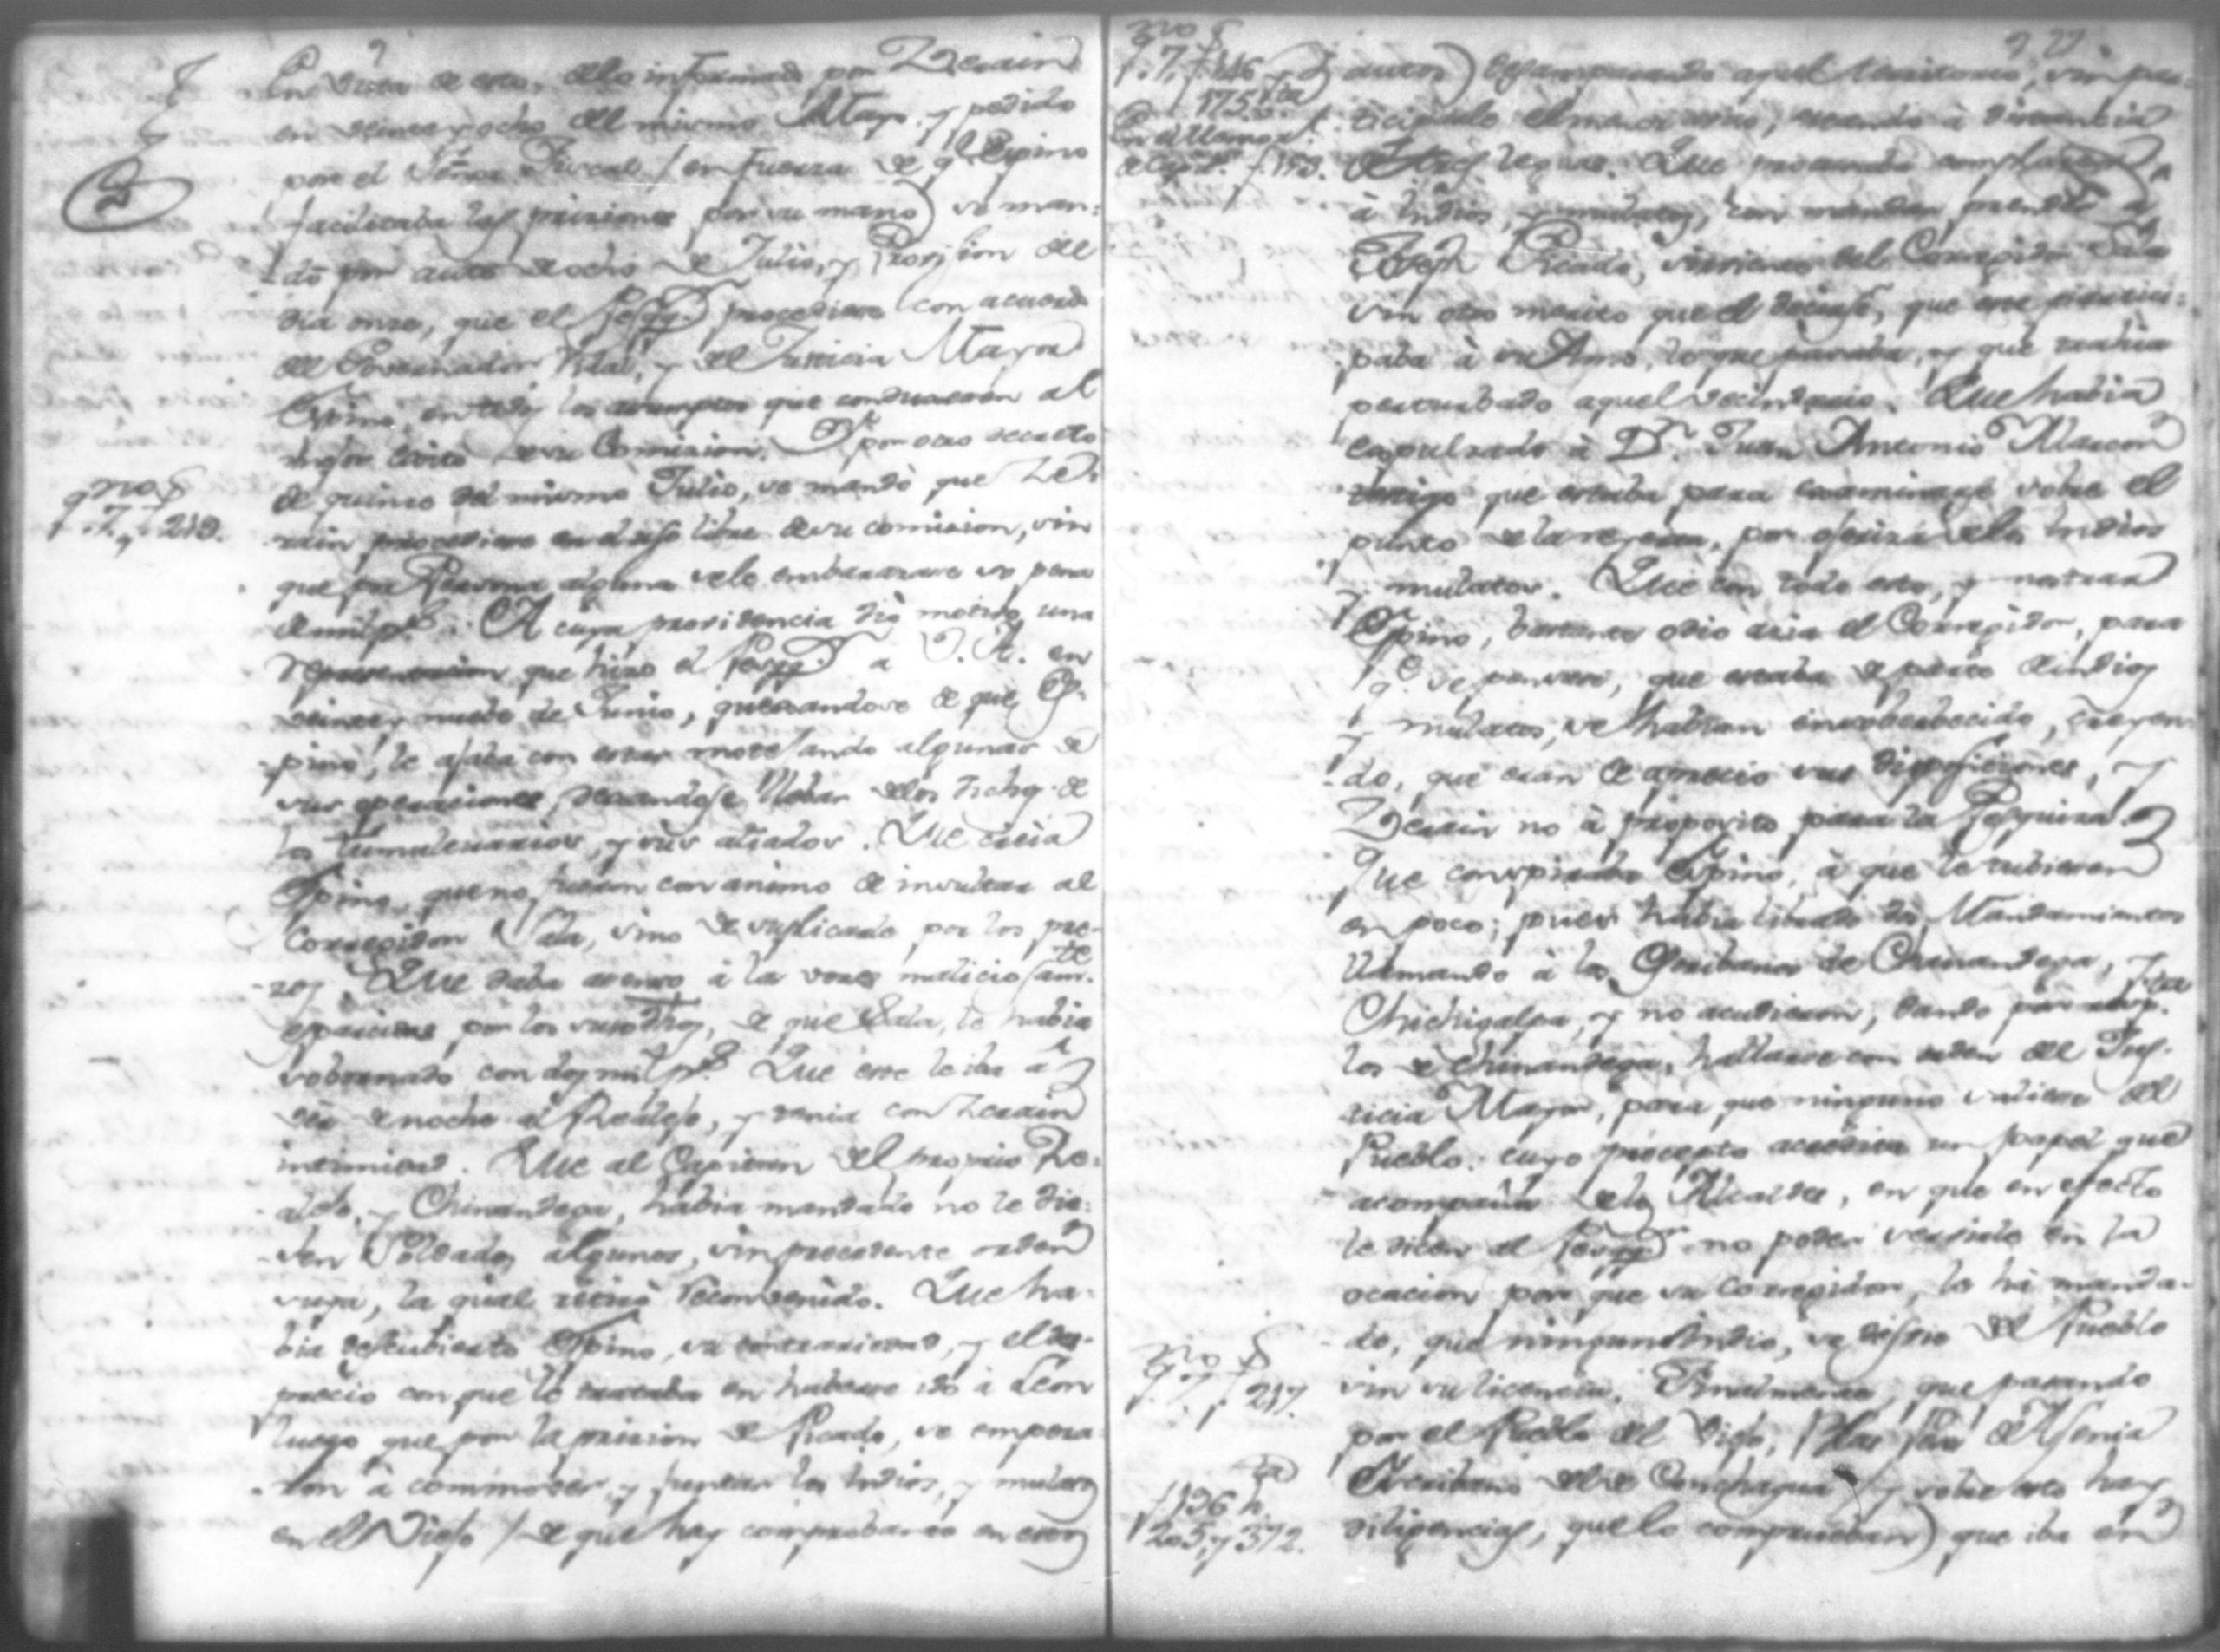 En vista de esto, dello informado por Zerain
en veinte y ocho del mismo Mayo, y pedido
por el Señor Fiscal (en fuerza de q.e Espino
facilitaba las prisiones por su mano) se man-
do por auto de ocho de Julio, y Provision del
dia onze, que el Pesqq.r procediese con acuerdo
del Governador Vidal, y del Justicia Mayor
Espino, en todos los assumptos que conduxeran al
mejor exito de su Comision. Y por otro decreto
de quinze del mismo Julio, se mandò que Ze-
rain procediese en el uso libre de su comision, sin
que por Persona alguna se le embarazase so pena
de mil p.s A cuya providencia diò motivo una
representacion que hizo el Pesqq.r a V. A. en
veinte y nueve de Junio, quexandose de que Es-
pino, le ajaba con estar motejando algunas de
sus operaciones, dexandose llebar delos dichos de
los tumultuarios, y sus aliados. Que creia
Espino, que no fueron con animo de insultar al
Corregidor Sala, sino de suplicarle por los pre-
sos. Que daba asenso à la voces maliciosam.te
esparcidas por los susodhos, de que Sala, le habia
sobornado con dos mil p.s Que este le iba a
ver de noche al Realejo, y tenia con Zerain
intimidad. Que al Capitan del propio Re-
alejo, y Chinandega, habia mandado no le die-
sen Soldados algunos, sin precedente orden
suya, la qual retirò reconvenido. Que ha-
bia descubierto Espino, su contrariedad, y el des-
precio con que le trataba en haberse ido à Leon
luego que por la prision de Picado, se empeza-
ron à commover, y juntar los Indios, y mulatos
en el Viejo (de que hay comprobante en estos
no 8
q. 7. f. 210.
no 8
f. 7. f. 146
175 b.ta
f. 193.
autos) desamparando aquel territorio, sin par-
ticiparle el menor aviso, estando à distancia
de tres leguas. Que procuraba complacer
à Indios, y mulatos, con mandar prender à
Joseph Picado, sirviente del Corregidor Sala
sin otro merito que el decirse, que este partici-
paba à su Amo, lo que pasaba, y que trahia
perturbado aquel vecindario. Que habia
expulsado à D.n Juan Antonio Alarcon
testigo que estaba para examinarse sobre el
punto de la , por ojeriza de los Indios
y mulatos. Que con todo esto, y mostrar
Espino, bastante odio azia el Corregidor, para
q.e se pensase, que estaba de parte de indios
y mulatos, se habian ensoberbecido, creyen-
do, que eran de aprecio sus disposiciones, y
Zerain no à proposito para la Pesquisa.
Que conspiraba Espino, à que le tubieren
en poco; pues habia librado dos Mandamientos
llamando à los Escribanos de Chinandega, y
Chichigalpa, y no acudieron, dando por resp.ta
los de Chinandega, hallarse con orden del Jus-
ticia Mayor, para que ninguno saliese del
Pueblo: cuyo precepto acredita un papel que
acompaña delos Alcaldes, en que en efecto
le dicen al Pesqq.r no poder servirle en la
ocacion por que su Corregidor, les há manda-
do, que ningun Indio, se desvie del Pueblo
sin su licencia. Finalmente, que pasando
por el Pueblo del Viejo, Blas de Asenia
Escribano del de Conchagua (y sobre esto hay
diligencias, que lo comprueban) que iba en
no 8
q. 7. f. 217.
f. 196 b.ta
205, y 372.